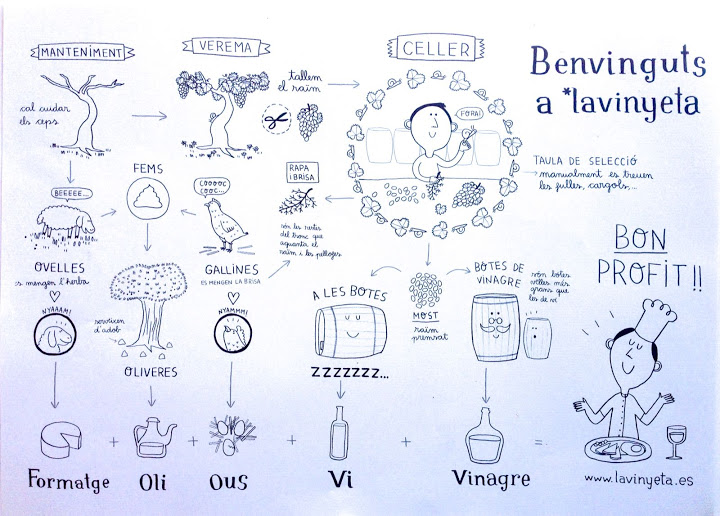 MANTENIMENT
VEREMA
CELLER
Benvinguts
a *lavinyeta
cal cuidar
els ceps
tallem
el raïm
FORA!
TAULA DE SELECCIÓ
manualment es treuen
les fulles, cargols,...
BEEEEE...
FEMS
COOOOC
COOC...
RAPA
I BRISA
són les restes
del tronc que
aguanta el
raïm i les pellofes
OVELLES
es mengen l'herba
NYAAAM!
GALLINES
ES MENGEN LA BRISA
NYAMMM!
serveixen
d'adob
OLIVERES
A LES BOTES
ZZZZZZZ...
MOST
raïm
premsat
BOTES DE
VINAGRE
són botes
velles més
grans que
les de vi
BON
PROFIT!!
+ + + + =
Formatge
Oli
Ous
Vi
Vinagre
www.lavinyeta.es